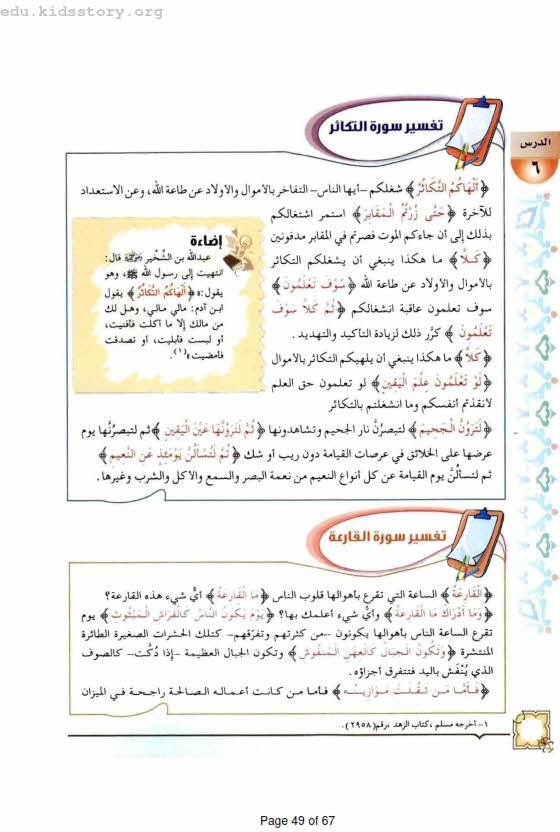 edu.kidsstory.org
الدرس
٦
تفسير سورة التكاثر
﴿ أَلْهَاكُمُ التَّكَاثُرُ ﴾ شغلكم -أيها الناس- التفاخر بالأموال والأولاد عن طاعة الله، وعن الاستعداد
للآخرة ﴿ حَتَّى زُرْتُمُ الْمَقَابِرَ ﴾ استمر اشتغالكم
بذلك إلى أن جاءكم الموت فصرتم في المقابر مدفونين
﴿ كَلَّا ﴾ ما هكذا ينبغي أن يشغلكم التكاثر
بالأموال والأولاد عن طاعة الله ﴿ سَوْفَ تَعْلَمُونَ ﴾
سوف تعلمون عاقبة انشغالكم ﴿ ثُمَّ كَلَّا سَوْفَ
تَعْلَمُونَ ﴾ كرَّر ذلك لزيادة التأكيد والتهديد .
﴿ كَلَّا ﴾ ما هكذا ينبغي أن يلهيكم التكاثر بالأموال
﴿ لَوْ تَعْلَمُونَ عِلْمَ الْيَقِينِ ﴾ لو تعلمون حق العلم
لأنقذتم أنفسكم وما انشغلتم بالتكاثر
﴿ لَتَرَوُنَّ الْجَحِيمَ ﴾ لتبصرُنَّ نار الجحيم وتشاهدونها ﴿ ثُمَّ لَتَرَوُنَّهَا عَيْنَ الْيَقِينِ ﴾ ثم لتبصرُنَّها يوم
عرضها على الخلائق في عرصات القيامة دون ريب أو شك ﴿ ثُمَّ لَتُسْأَلُنَّ يَوْمَئِذٍ عَنِ النَّعِيمِ ﴾
ثم لتسألُنَّ يوم القيامة عن كل أنواع النعيم من نعمة البصر والسمع والأكل والشرب وغيرها .
إضاءة
عبدالله بن الشِّخِّير ﵁ قال:
انتهيت إلى رسول الله ﷺ، وهو
يقول: «﴿ أَلْهَاكُمُ التَّكَاثُرُ ﴾ يقول
ابن آدم: مالي مالي، وهل لك
من مالك إلا ما أكلت فأفنيت،
أو لبست فأبليت، أو تصدقت
فأمضيت»(١).
تفسير سورة القارعة
﴿ الْقَارِعَةُ ﴾ الساعة التي تقرع بأهوالها قلوب الناس ﴿ مَا الْقَارِعَةُ ﴾ أيُّ شيء هذه القارعة؟
﴿ وَمَا أَدْرَاكَ مَا الْقَارِعَةُ ﴾ وأيُّ شيء أعلمك بها؟ ﴿ يَوْمَ يَكُونُ النَّاسُ كَالْفَرَاشِ الْمَبْثُوثِ ﴾ يوم
تقرع الساعة الناس بأهوالها يكونون -من كثرتهم وتفرّقهم- كتلك الحشرات الصغيرة الطائرة
المنتشرة ﴿ وَتَكُونُ الْجِبَالُ كَالْعِهْنِ الْمَنفُوشِ ﴾ وتكون الجبال العظيمة -إذا دُكَّت- كالصوف
الذي يُنْفَش باليد فتتفرق أجزاؤه .
﴿ فَأَمَّا مَن ثَقُلَتْ مَوَازِينُهُ ﴾ فأما من كانت أعماله الصالحة راجحة في الميزان
١- أخرجه مسلم ، كتاب الزهد ،برقم(٢٩٥٨).
Page 49 of 67